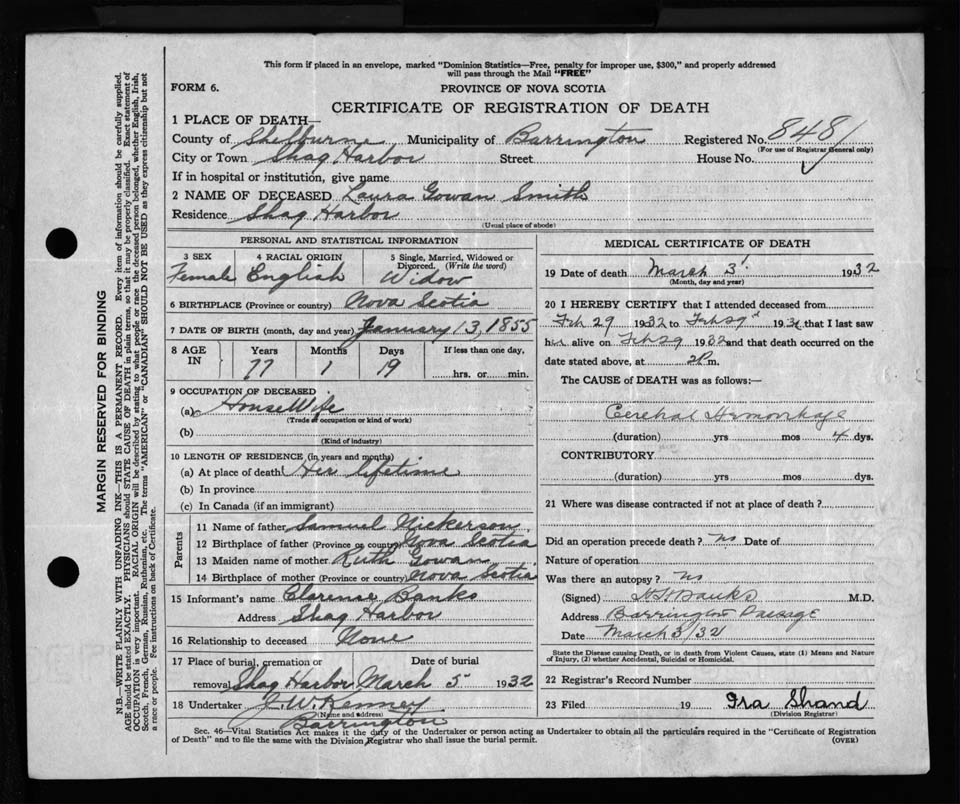 This form if placed in an envelope, marked "Dominion Statistics—Free, penalty for improper use, $300," and properly addressed
will pass through the Mail "FREE"
FORM 6. PROVINCE OF NOVA SCOTIA
CERTIFICATE OF REGISTRATION OF DEATH
1 PLACE OF DEATH—
County of Shelburne Municipality of Barrington Registered No. 848
(For use of Registrar General only)
City or Town Shag Harbor Street House No.
If in hospital or institution, give name
2 NAME OF DECEASED Laura Gowan Smith
Residence Shag Harbor
(Usual place of abode)
PERSONAL AND STATISTICAL INFORMATION
3 SEX 4 RACIAL ORIGIN 5 Single, Married, Widowed or
Divorced. (Write the word)
Female English Widow
6 BIRTHPLACE (Province or country) Nova Scotia
7 DATE OF BIRTH (month, day and year) January 13, 1855
8 AGE IN Years Months Days If less than one day,
77 1 19 hrs. or min.
9 OCCUPATION OF DECEASED
(a) House Wife
(Trade or occupation or kind of work)
(b)
(Kind of industry)
10 LENGTH OF RESIDENCE (in years and months)
(a) At place of death Her lifetime
(b) In province
(c) In Canada (if an immigrant)
Parents
11 Name of father Samuel Nickerson
12 Birthplace of father (Province or country) Nova Scotia
13 Maiden name of mother Ruth Gowan
14 Birthplace of mother (Province or country) Nova Scotia
15 Informant's name Clarense Banks
Address Shag Harbor
16 Relationship to deceased None
17 Place of burial, cremation or Date of burial
removal Shag Harbor March 5 1932
18 Undertaker J. W. Kenney
(Name and address)
Barrington
MEDICAL CERTIFICATE OF DEATH
19 Date of death March 3 1932
(Month, day and year)
20 I HEREBY CERTIFY that I attended deceased from
Feb 29 1932 to 193 that I last saw
h alive on 1932 and that death occurred on the
date stated above, at 2 P m.
The CAUSE of DEATH was as follows:—
Cerebral Hemorrhage
(duration) yrs mos 4 dys.
CONTRIBUTORY
(duration) yrs mos dys.
21 Where was disease contracted if not at place of death?
Did an operation precede death? no Date of
Nature of operation
Was there an autopsy? no
(Signed) Banks M.D.
Address Barrington Passage
Date March 3/32
State the Disease causing Death, or in death from Violent Causes, state (1) Means and Nature
of Injury, (2) whether Accidental, Suicidal or Homicidal.
22 Registrar's Record Number
23 Filed 19 Ira Shand
(Division Registrar)
Sec. 46—Vital Statistics Act makes it the duty of the Undertaker or person acting as Undertaker to obtain all the particulars required in the "Certificate of Registration
of Death" and to file the same with the Division Registrar who shall issue the burial permit. (OVER)
MARGIN RESERVED FOR BINDING
N.B.—WRITE PLAINLY WITH UNFADING INK—THIS IS A PERMANENT RECORD. Every item of information should be carefully supplied.
AGE should be stated EXACTLY. PHYSICIANS should STATE CAUSE OF DEATH in plain terms, so that it may be properly classified. Exact statement of
OCCUPATION is very important. RACIAL ORIGIN will be described by stating to what people or race the deceased person belonged, whether English, Irish,
Scotch, French, German, Russian, Ruthenian, etc. The terms "AMERICAN" or "CANADIAN" SHOULD NOT BE USED as they express citizenship but not
a race or people. See instructions on back of Certificate.